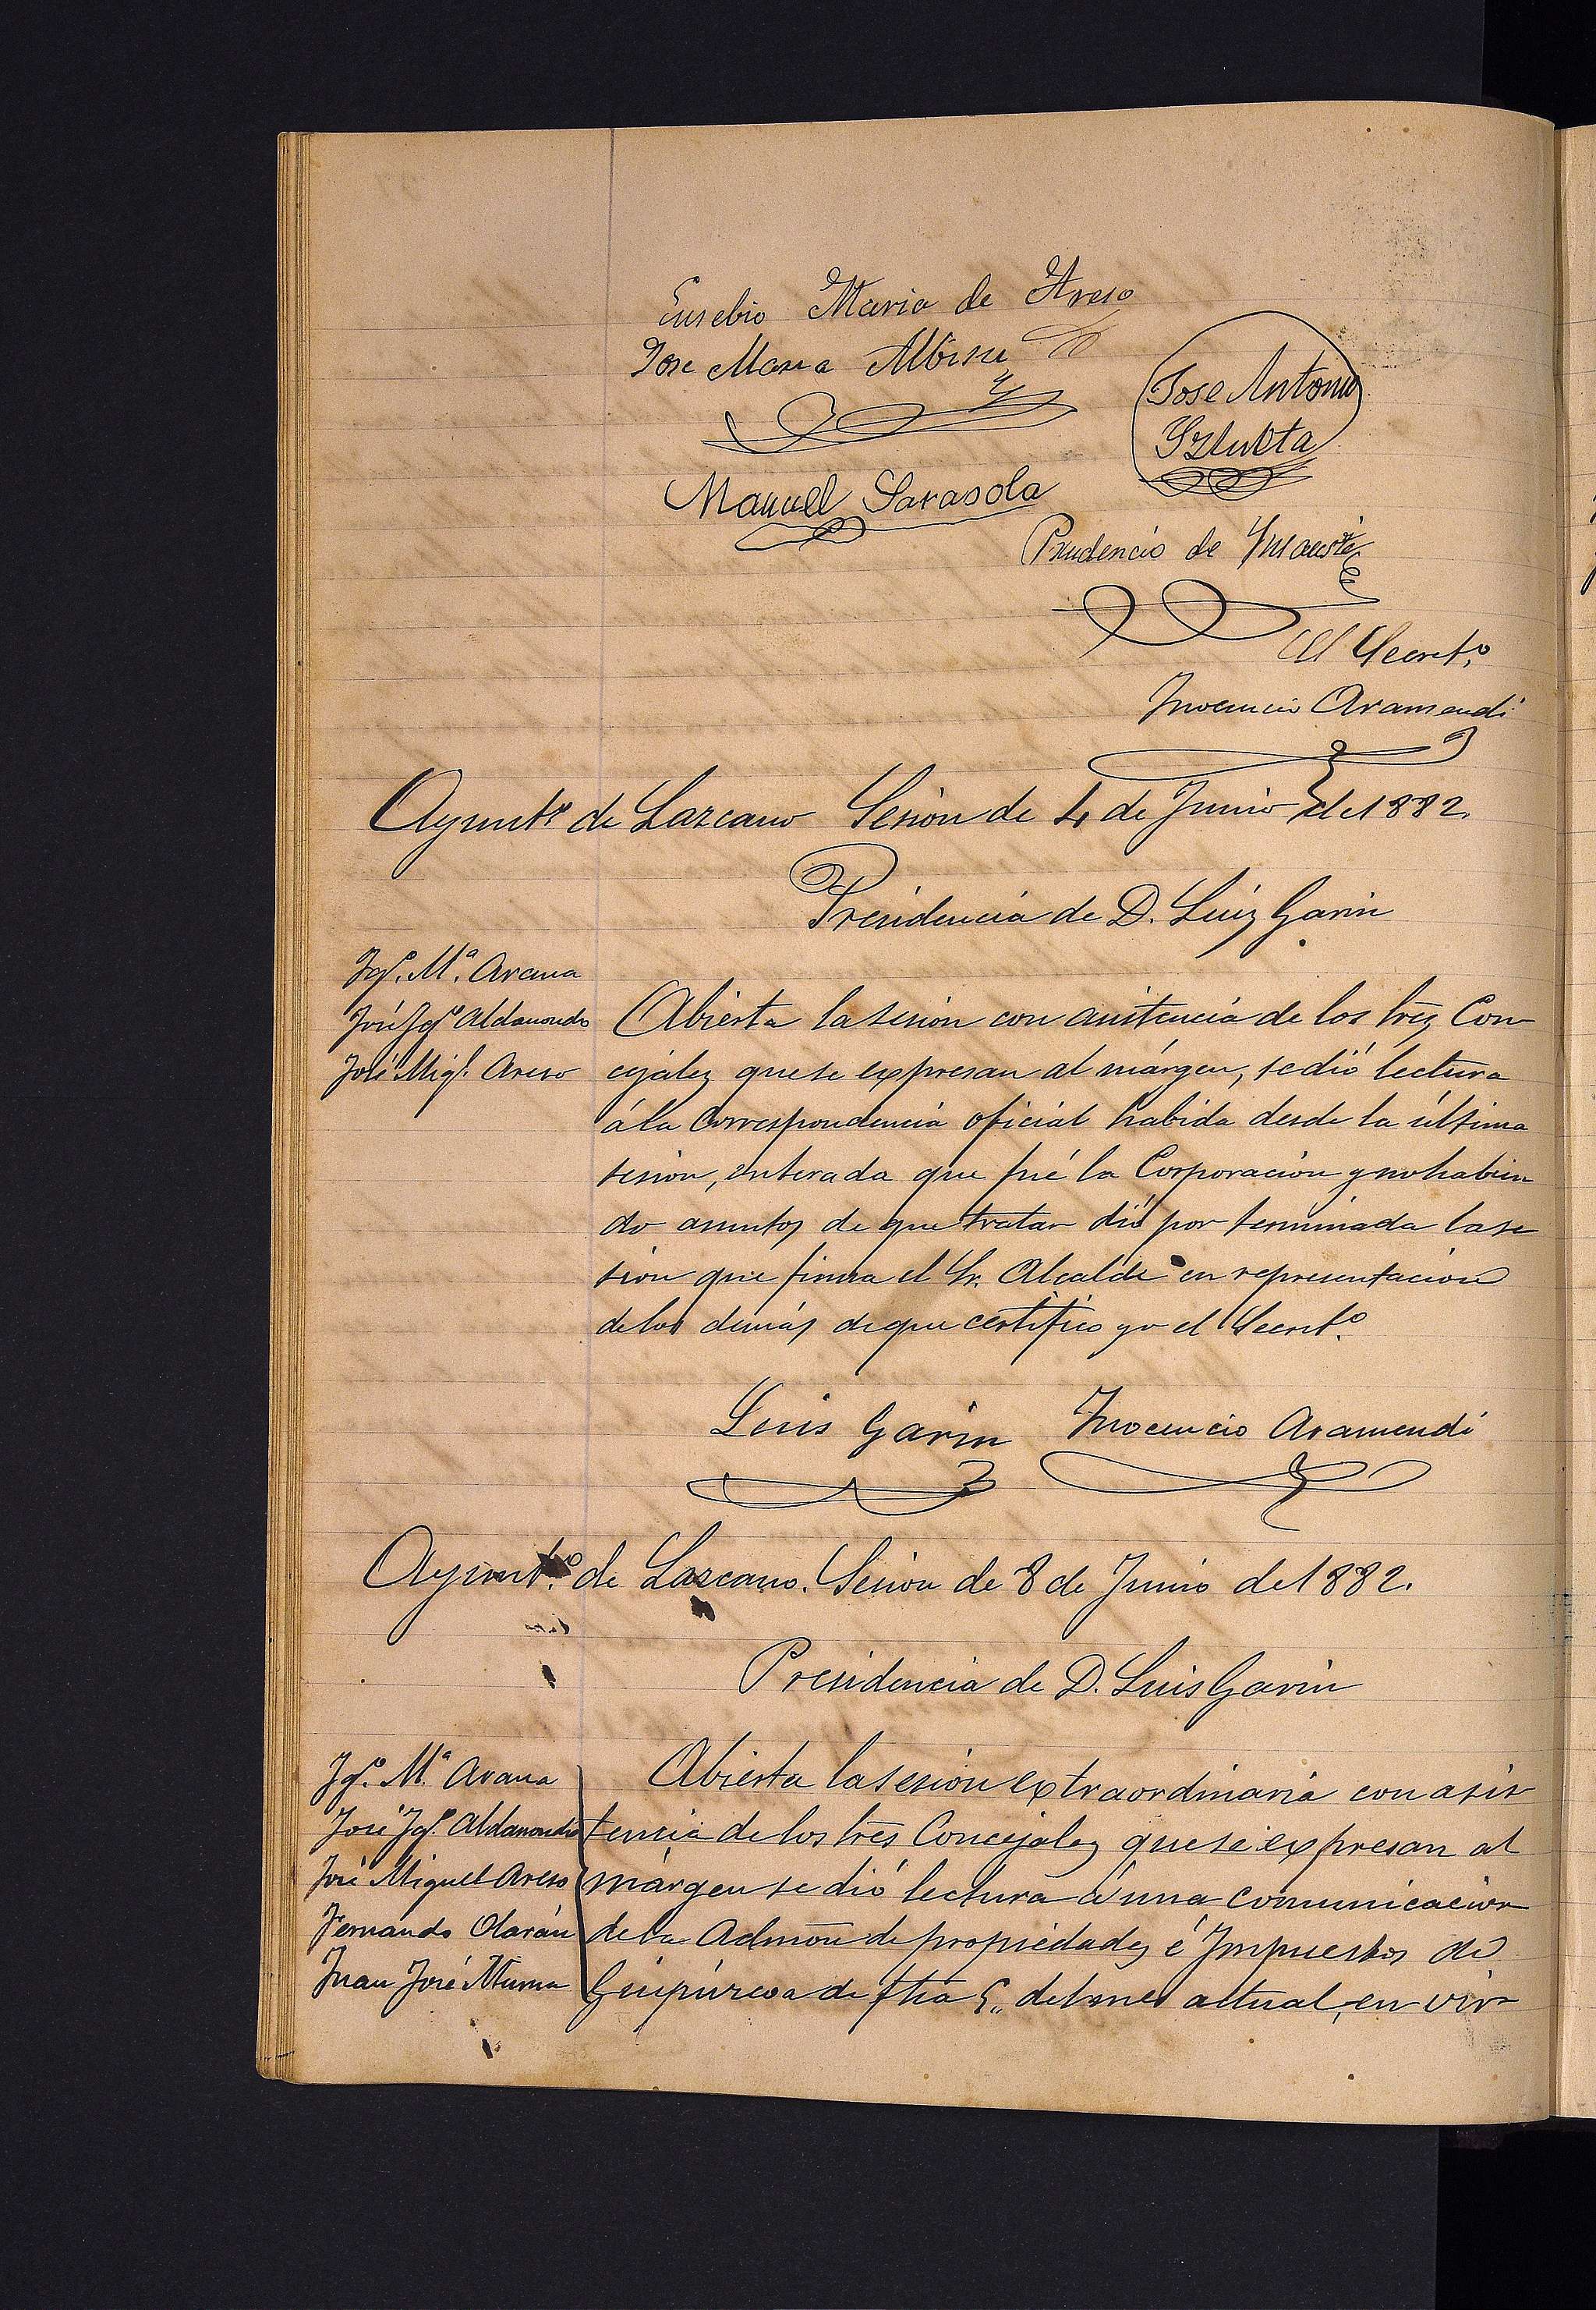 Eusebio Maria de Areso
Jose Maria Albisu
Jose Antonio
Yzlueta
Manuel Sarasola
Prudencio de
El Secret.º
Inocencio Aramendi
Ayuntº de Lazcano Sesion de 4 de Junio de 1882.
Presidencia de D. Luiz Garin
Jgº. Mª. Arana
José Jgº Aldanondo
José Migl. Areso
Abierta la sesion con asistencia de los tres Con-
cejales que se expresan al márgen, se dió lectura
á la Correspondencia oficial habida desde la última
sesion, enterada que fué la Corporacion y no habien
do asuntos de que tratar dió por terminada la se
sion que firma el Sr. Alcalde en representacion
de los demás de que certifico yo el Secretº.
Luis Garin Inocencio Aramendi
Ayuntº. de Lazcano. Sesion de 8 de Junio de 1882.
Presidencia de D. Luis Garin
Jgº. Mª. Arana
José Jgº. Aldanondo
José Miguel Areso
Fernando Olarán
Juan José Murua
Abierta la sesion extraordinaria con asis
tencia de los tres Concejales que se expresan al
márgen se dió lectura á una comunicacion
de la Admōn de propiedades é Impuestos de
Guipúzcoa de fha 5,, del mes actual, en vir-